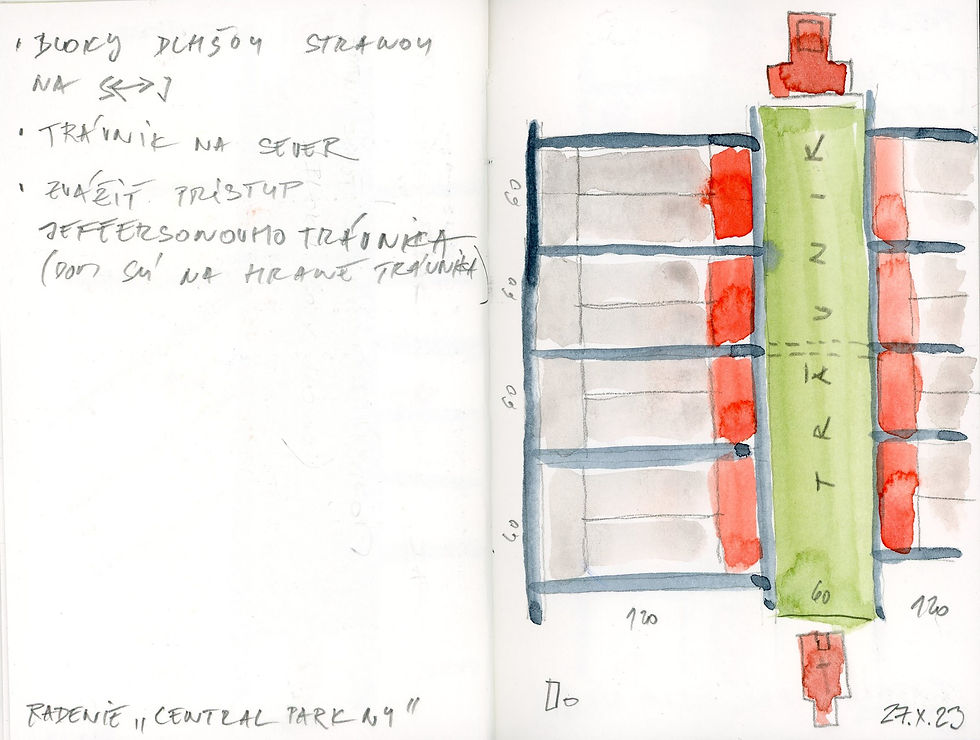 • BLOKY DLHŠOU STRANOU
NA S<->J
• TRÁVNIK NA SEVER
• ZVÁŽIŤ PRÍSTUP
JEFFERSONOVHO TRÁVNIKA
(DOM SÚ NA HRANE TRÁVNIKA)
RADENIE „CENTRAL PARK NY"
60
60
60
60
TRÁVNIK
60
120
120
27.X.23